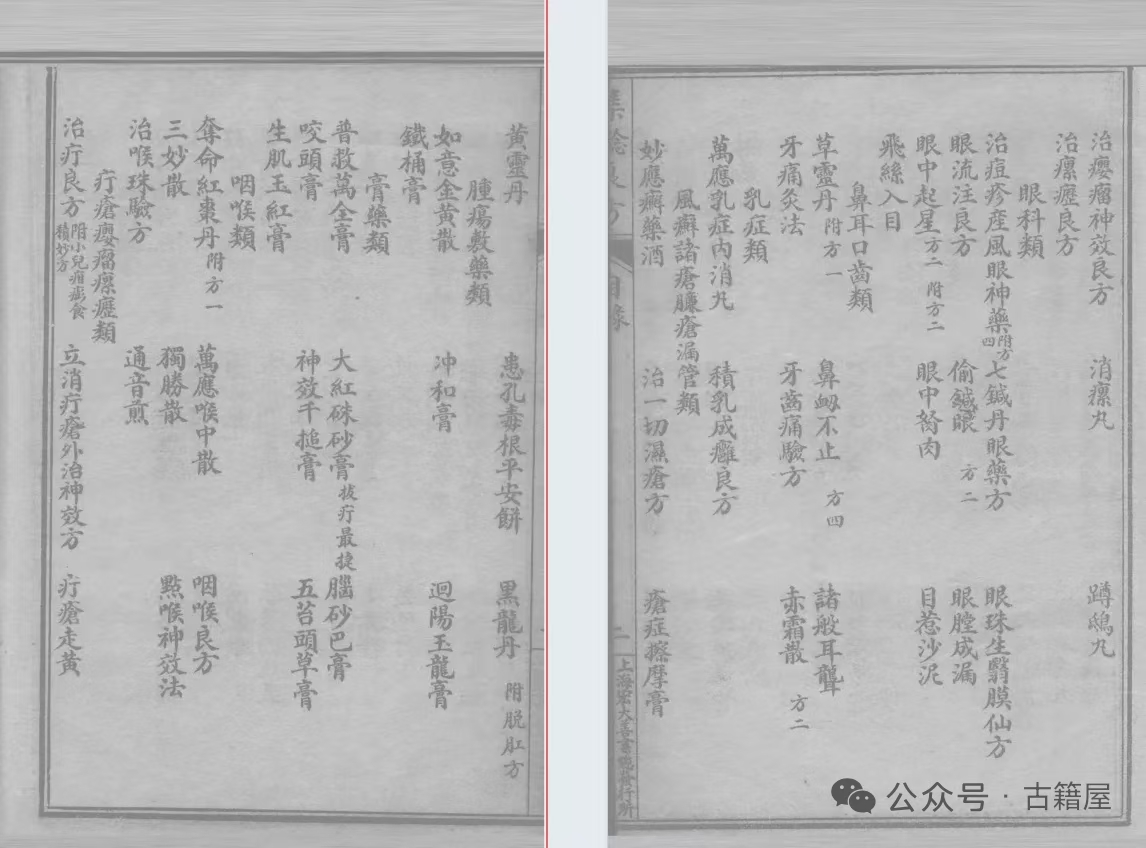 黃靈丹 患孔毒根平安餅 黑龍丹 附脫肛方
腫瘍敷藥類
如意金黃散 冲和膏 迴陽玉龍膏
鐵桶膏
膏藥類
普救萬全膏 大紅硃砂膏 拔疔最捷 腦砂巴膏
咬頭膏 神效千搥膏 五苔頭草膏
生肌玉紅膏
咽喉類
奪命紅棗丹 附方一 萬應喉中散 咽喉良方
三妙散 獨勝散 點喉神效法
治喉珠驗方 通音煎
疔瘡癭瘤瘰癧類
治疔良方 附小兒疳積妙方 立消疔瘡外治神效方 疔瘡走黃
治癭瘤神效良方 消瘰丸 蹲鴟丸
治瘰癧良方
眼科類
治痘疹産風眼神藥 附方四 七鍼丹眼藥方 眼珠生翳膜仙方
眼流注良方 偷鍼眼 方二 眼膛成漏
眼中起星 方二 附方二 眼中胬肉 目惹沙泥
飛絲入目
鼻耳口齒類
草靈丹 附方一 鼻衂不止 方四 諸般耳聾
牙痛灸法 牙齒痛驗方 赤霜散 方二
乳症類
萬應乳症內消丸 積乳成癰良方
風癬諸瘡臁瘡漏管類
妙應癬藥酒 治一切濕瘡方 瘡症擦摩膏
良方 目錄 二 上海
公众号 · 古籍屋